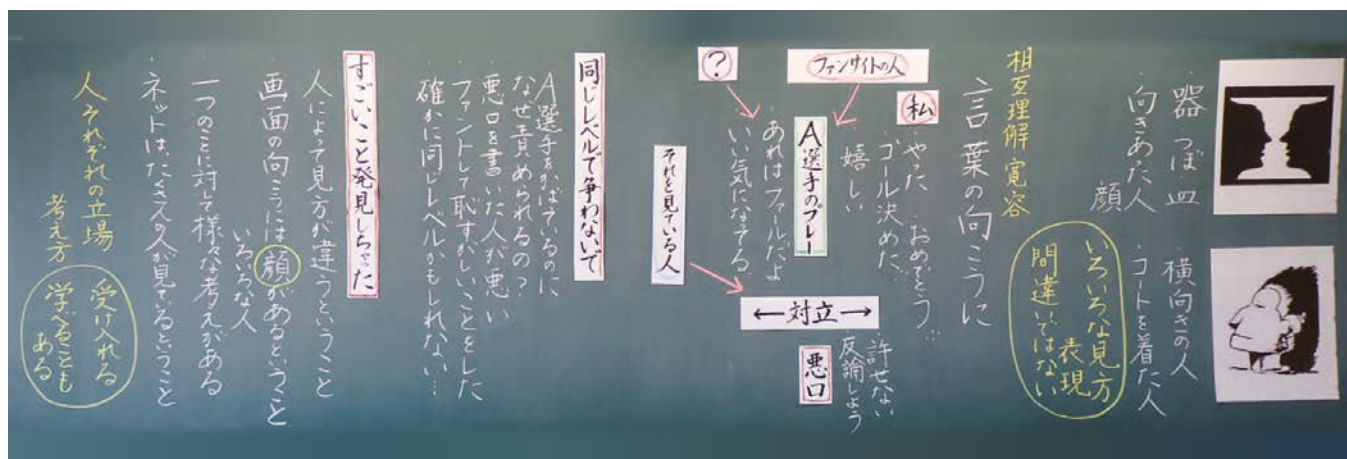 ・器 つぼ 皿
・向きあった人
顔
・横向きの人
・コートを着た人
いろいろな見方
表現
間違いではない
相互理解 寛容
言葉の向こうに
ファンサイトの人
私
・やった ・おめでとう…
・ゴール決めた…
・嬉しい
A選手のプレー
?
・あれはファールだよ
・いい気になってる
←対立→
・許せない
反論しよう
悪口
それを見ている人
同じレベルで争わないで
・A選手をかばているのに
なぜ責められるの?
・悪口を書いた人が悪い
・ファンとして恥ずかしいことをした
・確かに同じレベルかもしれない…
すごいこと発見しちゃった
・人によって見方が違うということ
・画面の向こうには顔があるということ
いろいろな人
・一つのことに対して様々な考えがある
・ネットは、たくさんの人が見ているということ
人それぞれの立場
考え方
受け入れる
学べることも
ある